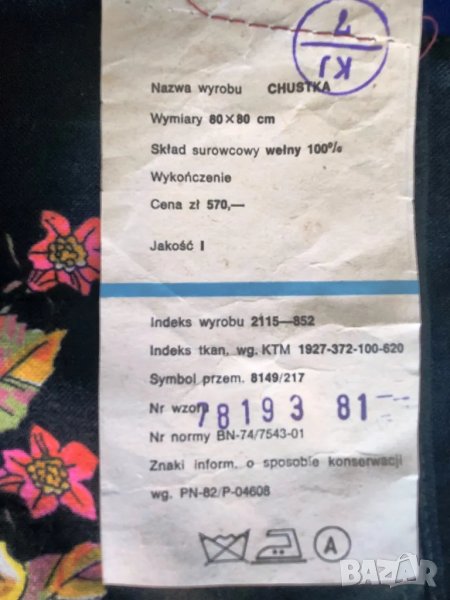 KJ
7
Nazwa wyrobu CHUSTKA
Wymiary 80×80 cm
Skład surowcowy wełny 100%
Wykończenie
Cena zł 570,—
Jakość I
Indeks wyrobu 2115—852
Indeks tkan. wg. KTM 1927-372-100-620
Symbol przem. 8149/217
Nr wzoru 78193 81
Nr normy BN-74/7543-01
Znaki inform. o sposobie konserwacji
wg. PN-82/P-04608
A
BAZAR